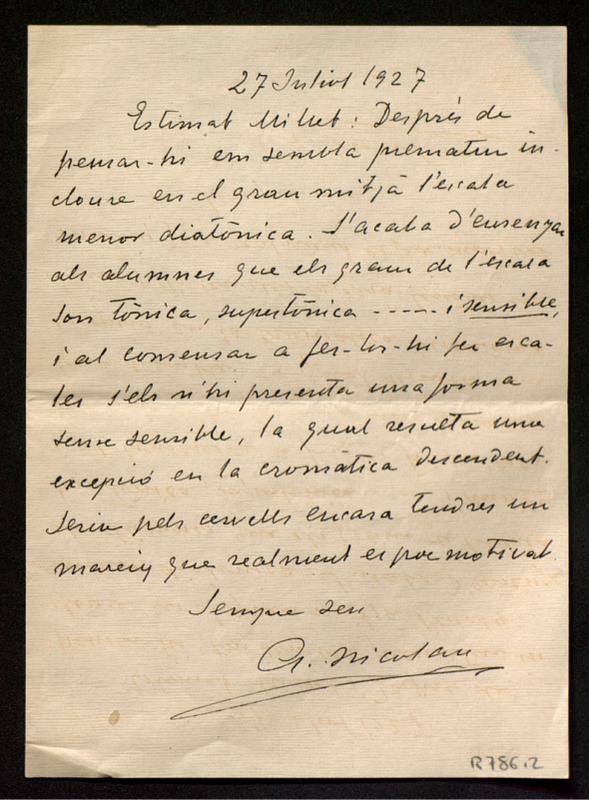 27 Juliol 1927
Estimat Millet: Després de
pensar-hi em sembla prematur in-
cloure en el grau mitjà l'escala
menor diatònica. S'acaba d'ensenyar
als alumnes que els graus de l'escala
son tònica, supertònica ----- i sensible,
i al comensar a fer-los-hi fer esca-
les s'els n'hi presenta una forma
sense sensible, la qual resulta una
excepció en la cromàtica descendent.
Seria pels cervells encara tendres un
mareig que realment es poc motivat.
Sempre seu
A. Nicolau
R786.2